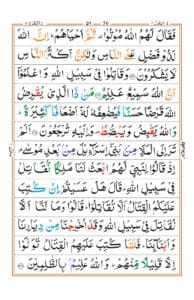 فَقَالَ لَهُمُ اللّٰهُ مُوْتُوْا ثُمَّ اَحْيَاهُمْ ؕ اِنَّ اللّٰهَ
لَذُوْ فَضْلٍ عَلَى النَّاسِ وَلٰكِنَّ اَكْثَرَ النَّاسِ
لَا يَشْكُرُوْنَ وَقَاتِلُوْا فِيْ سَبِيْلِ اللّٰهِ وَاعْلَمُوْۤا
اَنَّ اللّٰهَ سَمِيْعٌ عَلِيْمٌ مَنْ ذَا الَّذِيْ يُقْرِضُ
اللّٰهَ قَرْضًا حَسَنًا فَيُضٰعِفَهٗ لَهٗۤ اَضْعَافًا كَثِيْرَةً ؕ وَ
اللّٰهُ يَقْبِضُ وَيَبْصُۜطُ وَاِلَيْهِ تُرْجَعُوْنَ اَلَمْ تَرَ
اِلَى الْمَلَاِ مِنْۢ بَنِيْۤ اِسْرَآءِيْلَ مِنْۢ بَعْدِ مُوْسٰى ۘ
اِذْ قَالُوْا لِنَبِيٍّ لَّهُمُ ابْعَثْ لَنَا مَلِكًا نُّقَاتِلْ
فِيْ سَبِيْلِ اللّٰهِ ؕ قَالَ هَلْ عَسَيْتُمْ اِنْ كُتِبَ
عَلَيْكُمُ الْقِتَالُ اَلَّا تُقَاتِلُوْا ؕ قَالُوْا وَمَا لَنَاۤ اَلَّا
نُقَاتِلَ فِيْ سَبِيْلِ اللّٰهِ وَقَدْ اُخْرِجْنَا مِنْ دِيَارِنَا
وَاَبْنَآئِنَا ؕ فَلَمَّا كُتِبَ عَلَيْهِمُ الْقِتَالُ تَوَلَّوْا
اِلَّا قَلِيْلًا مِّنْهُمْ ؕ وَاللّٰهُ عَلِيْمٌۢ بِالظّٰلِمِيْنَ